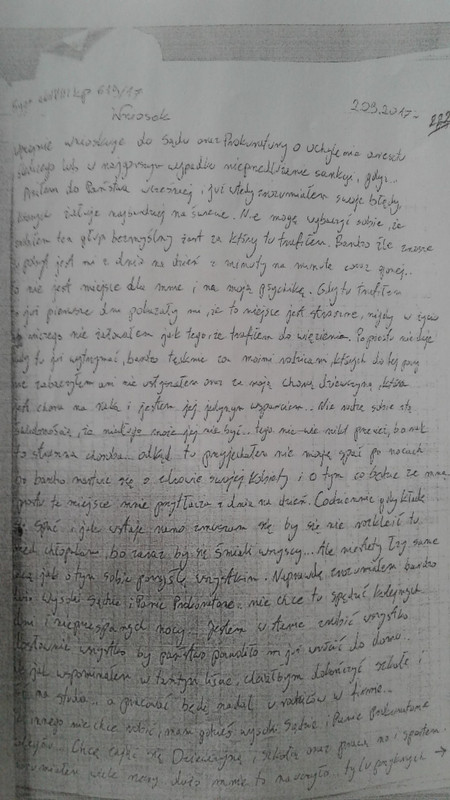 Sygn akt VIII Kp 619/17
Wniosek 2.09.2017r 222
uprzejmie wnioskuje do Sądu oraz Prokuratury o uchylenie aresztu
lub w najgorszym wypadku nieprzedłużenie sankcji, gdyż...
Pisałem do Państwa wcześniej i już wtedy zrozumiałem swoje błędy,
których żałuje najbardziej na świecie. Nie mogę wybaczyć sobie, że
zrobiłem ten głupi bezmyślny żart za który tu trafiłem. Bardzo źle znoszę
pobyt jest mi z dnia na dzień z minuty na minute coraz gorzej..
To nie jest miejsce dla mnie i na moją psychikę. Gdy tu trafiłem
już pierwsze dni pokazały mi, że to miejsce jest straszne, nigdy w życiu
niczego nie żałowałem jak tego że trafiłem do więzienia. Poprostu nie daje
tu już wytrzymać, bardzo tęsknie za moimi rodzicami, których do tej pory
nie zobaczyłem ani nie usłyszałem oraz za moją chorą dziewczyną, która
jest chora na raka i jestem jej jedynym wsparciem.. Nie radze sobie z tą
świadomością, że niedługo może jej nie być.. tego nie wie nikt przecież, bo rak
to straszna choroba.. odkąd tu przyjechałem nie mogę spać po nocach
bo bardzo martwie się o zdrowie swojej kobiety i o tym co będzie ze mną
poprostu te miejsce mnie przytłacza z dnia na dzień. Codziennie gdy kładę
się spać i jak wstaje rano zmuszam się by się nie rozkleić tu
przed chłopakami, bo zaraz by się śmiali wszyscy... Ale niestety łzy same
lecą jak o tym sobie pomyślę wszystkim. Naprawdę zrozumiałem bardzo
dużo Wysoki Sądzie i Panie Prokuratorze.. nie chce tu spędzać kolejnych
dni i nieprzespanych nocy.. Jestem w stanie zrobić wszystko
dosłownie wszystko by państwo pozwoliło mi już wrócić do domu..
jak wspominałem w tamtym liście, chciałbym dokończyć szkołe i
iść na studia.. a pracować będę nadal u rodziców w firmie..
innego nie chce robić, mam gdzieś wysoki Sądzie i Panie Prokuratorze
Chcę zająć się Dziewczyną i szkołą oraz pracą no i sportem.
zrozumiałem wiele rzeczy dużo mnie to nauczyło tylu przykrych →